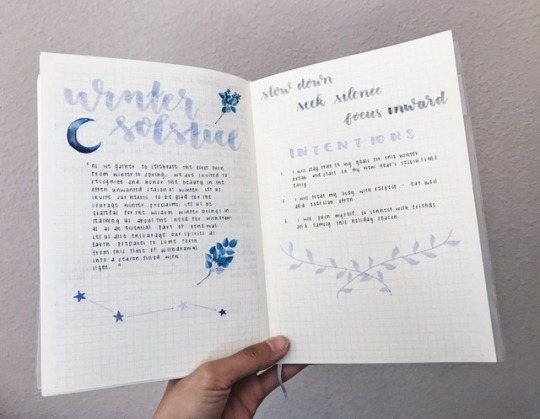 winter
solstice
"As we gather to celebrate the first turn
from winter to spring, we are invited to
recognize and honor the beauty in the
often unwanted season of winter. Let us
invite our hearts to be glad for the
courage winter proclaims. Let us be
grateful for the wisdom winter brings in
teaching us about the need for withdrawal
as an essential part of renewal.
Let us also encourage our spirits as
Earth prepares to come forth
from this time of withdrawal
into a season filled with
light."
slow down
seek silence
focus inward
INTENTIONS
1. I will stay true to my goals for this winter
break and start on my new year's resolutions
early
2. I will treat my body with respect - eat well
and exercise often
3. I will push myself to connect with friends
and family this holiday season